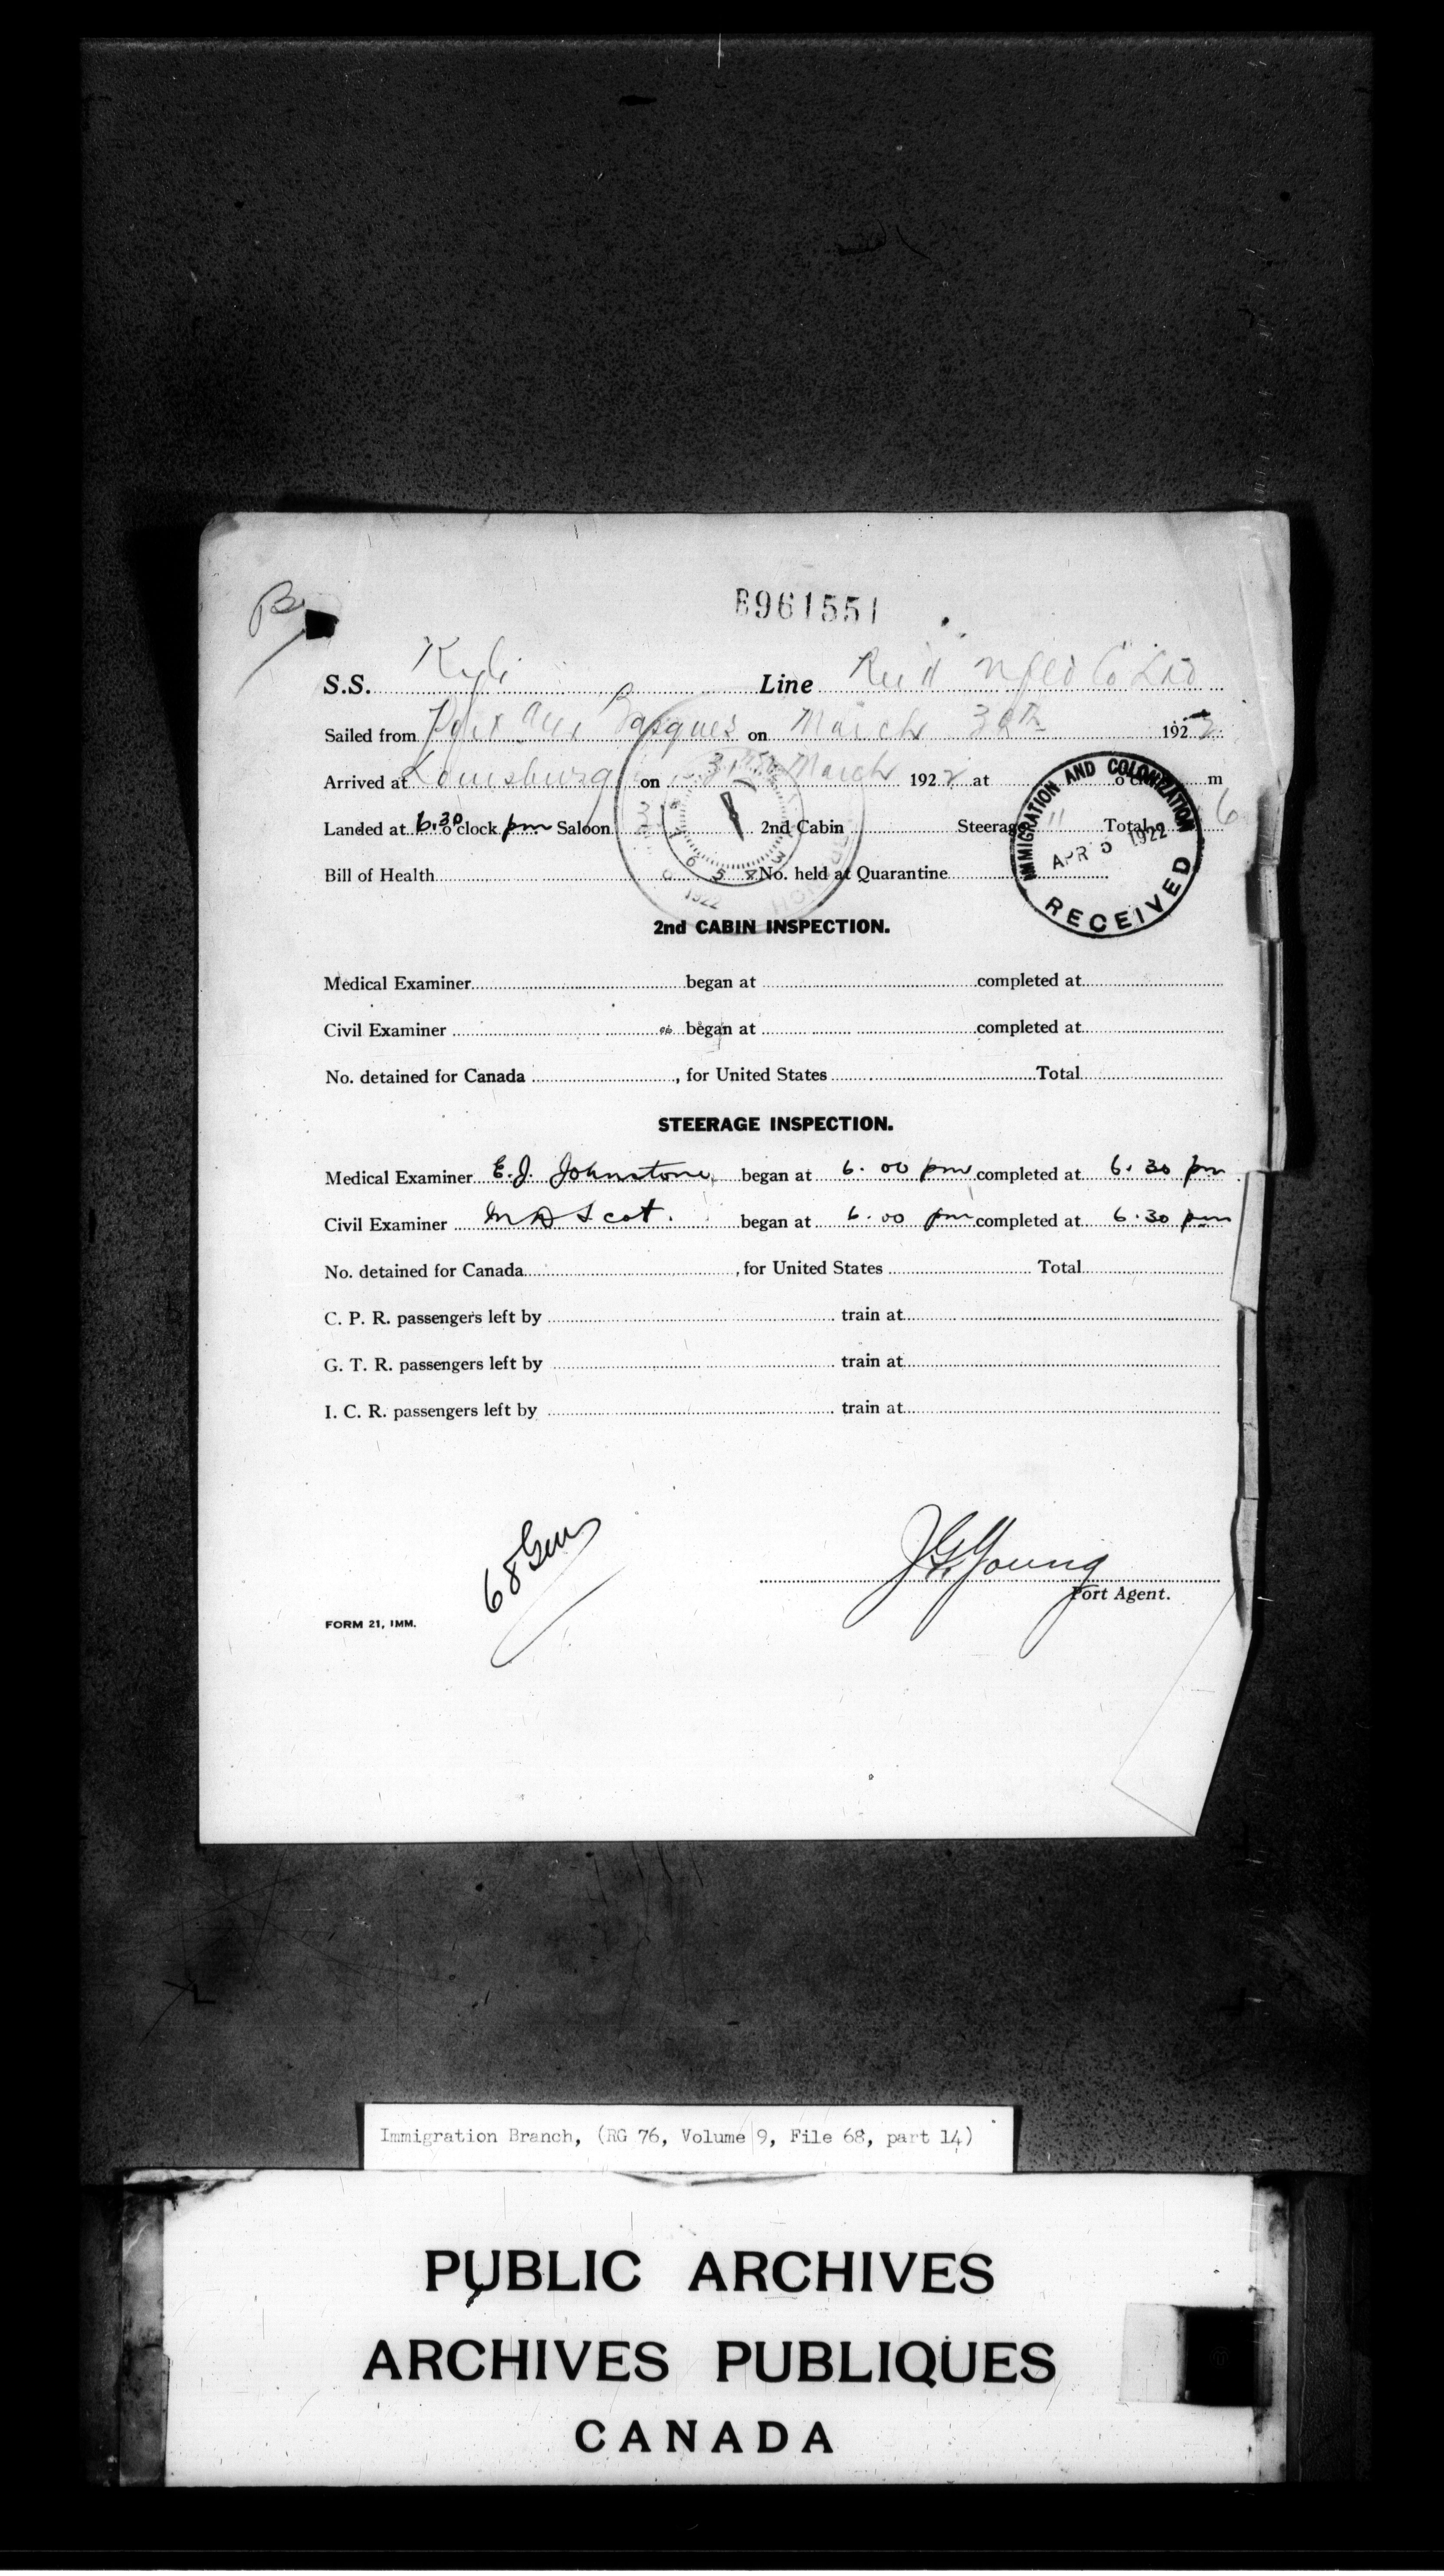 B961551
S.S. Kyle Line Reid Nfld Co Ltd
Sailed from Port Aux Basques on March 30th 1922
Arrived at Louisburg on 31st March 1922 at o'clock m
Landed at 6.30 o'clock pm Saloon 2nd Cabin Steerage Total 6
Bill of Health No. held at Quarantine
IMMIGRATION AND COLONIZATION
APR 5 1922
RECEIVED
1922
2nd CABIN INSPECTION.
Medical Examiner began at completed at
Civil Examiner began at completed at
No. detained for Canada , for United States Total
STEERAGE INSPECTION.
Medical Examiner E.J. Johnstone began at 6.00 pm completed at 6.30 pm
Civil Examiner began at 6.00 pm completed at 6.30 pm
No. detained for Canada , for United States Total
C. P. R. passengers left by train at
G. T. R. passengers left by train at
I. C. R. passengers left by train at
68
J G Young
Port Agent.
FORM 21, IMM.
Immigration Branch, (RG 76, Volume 9, File 68, part 14)
PUBLIC ARCHIVES
ARCHIVES PUBLIQUES
CANADA